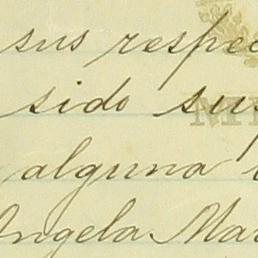 sus respec
sido sus
alguna
Angela Mar